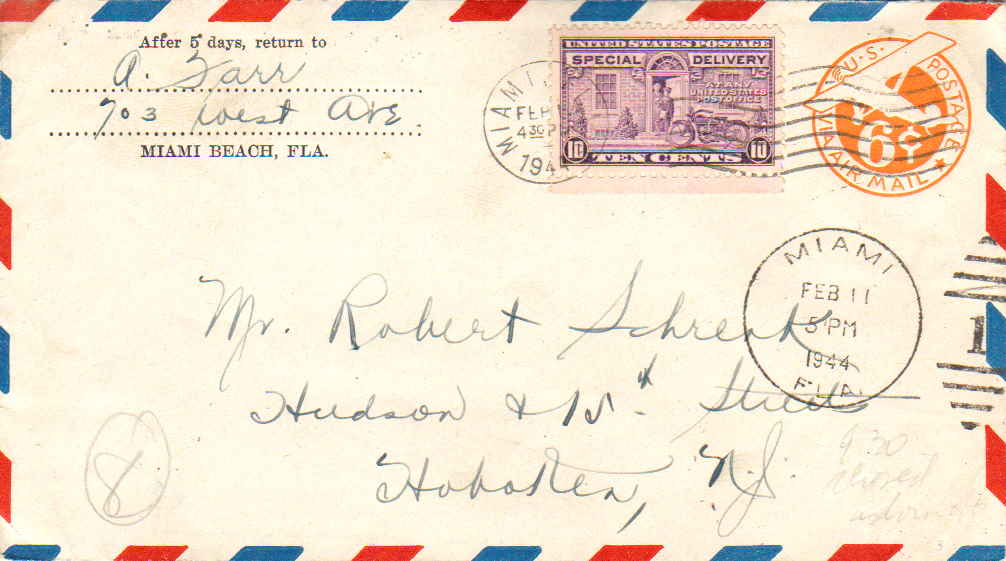 After 5 days, return to
A. Zarr
703 West Ave
MIAMI BEACH, FLA.
UNITED STATES POSTAGE
SPECIAL DELIVERY
AT ANY
UNITED STATES
POST OFFICE
10 TEN CENTS 10
MIAMI,
FEB
4 30 P
194
U.S. POSTAGE
6¢
VIA AIR MAIL
MIAMI
FEB 11
5 PM
1944
FLA.
1
Mr. Robert Schrenk
Hudson & 15th Street
Hoboken, N.J.
8
9 30
closed